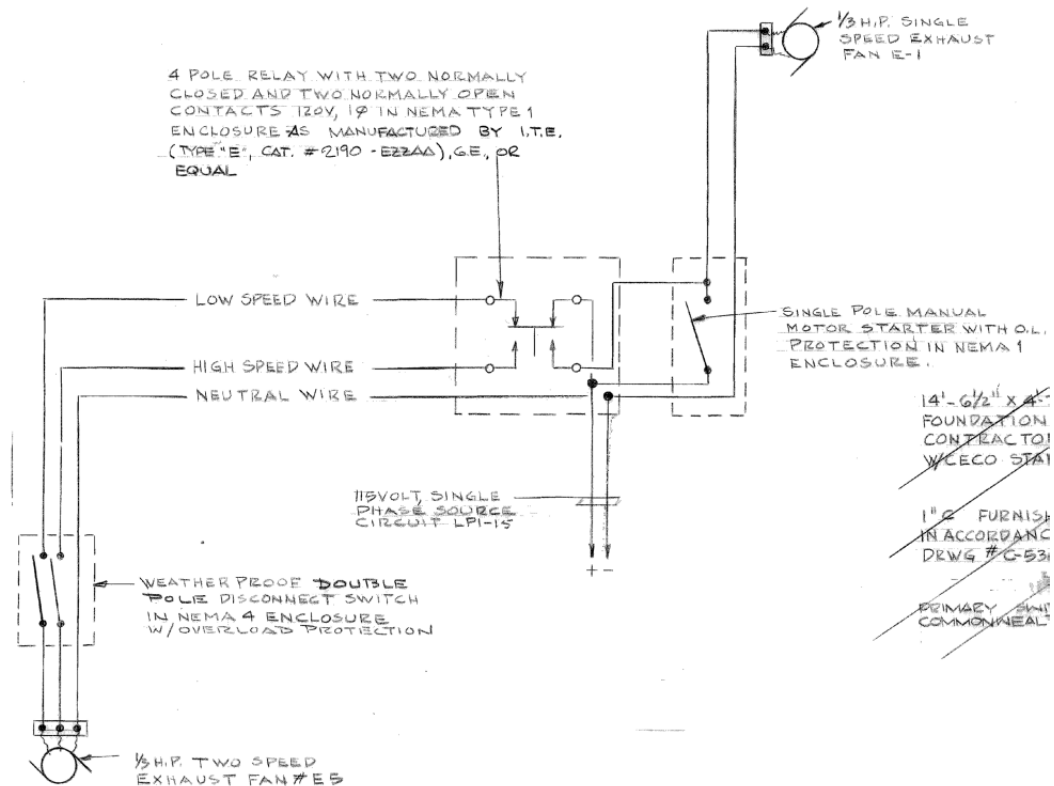 1/3 H.P. SINGLE
SPEED EXHAUST
FAN E-1
4 POLE RELAY WITH TWO NORMALLY
CLOSED AND TWO NORMALLY OPEN
CONTACTS 120V, 1φ IN NEMA TYPE 1
ENCLOSURE AS MANUFACTURED BY I.T.E.
(TYPE "E", CAT. #2190-E22AA), G.E., OR
EQUAL
LOW SPEED WIRE
HIGH SPEED WIRE
NEUTRAL WIRE
SINGLE POLE MANUAL
MOTOR STARTER WITH O.L.
PROTECTION IN NEMA 1
ENCLOSURE.
14'-6 1/2" X
FOUNDATION
W/CECO
115 VOLT, SINGLE
PHASE SOURCE
CIRCUIT LP1-15
+ -
1" C FURNISH
DRWG #
PRIMARY
WEATHER PROOF DOUBLE
POLE DISCONNECT SWITCH
IN NEMA 4 ENCLOSURE
W/OVERLOAD PROTECTION
1/3 H.P. TWO SPEED
EXHAUST FAN #E5